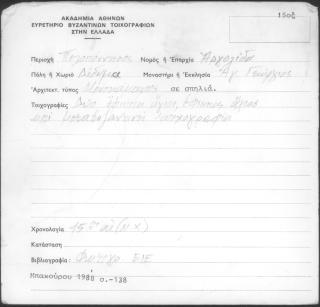 15ος
ΑΚΑΔΗΜΙΑ ΑΘΗΝΩΝ
ΕΥΡΕΤΗΡΙΟ ΒΥΖΑΝΤΙΝΩΝ ΤΟΙΧΟΓΡΑΦΙΩΝ
ΣΤΗΝ ΕΛΛΑΔΑ
Περιοχή Πελοπόννησος Νομός ή Επαρχία Αργολίδα
Πόλη ή Χωριό Μοναστήρι ή Εκκλησία Αγ. Γεώργιος
Αρχιτεκτ. τύπος Μονόκλιτος σε σπηλιά.
Τοιχογραφίες Δύο άγιος
μεταβυζαντινή τοιχογραφία
Χρονολογία 15ος αι (Μ.Χ)
Κατάσταση
Βιβλιογραφία: ΕΙΕ
Μπακούρου 1980 σ.-138